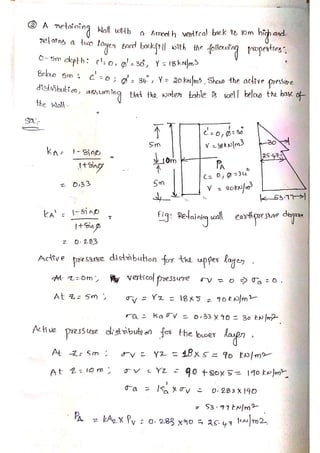 ② A retaining Wall with a smooth vertical back is 10m high and
retains a two layer sand backfill with the following properties:
0-5m depth: c'=0, ø'=30°, Y=18kN/m3
Below 5m: c'=0; ø'=34°, Y=20kN/m3. Show the active pressure
distribution, assuming that the water table is well below the base of
the wall.
Sol:-
C=0, ø=30
Y=18kN/m3
5m
10m
30
25.47
PA
C=0, ø=34°
Y=20kN/m3
5m
53.77
KA = 1-Sinø / 1+Sinø
= 0.33
KA' = 1-Sinø / 1+Sinø =
= 0.283
Fig: Retaining wall earthpressure diagram
Active pressure distribution for the upper layer.
At z=0m; vertical pressure σv = 0 ⇒ σa = 0.
At z = 5m; σv = Yz = 18×5 = 90kN/m2
σa = ka σv = 0.33×90 = 30 kN/m2.
Active pressure distribution for the lower layer.
At z=5m; σv = Yz = 18×5 = 90 kN/m2
At z=10m; σv = Yz = 90+20×5 = 190kN/m2
σa = ka' × σv = 0.283×190
= 53.77kN/m2
PA = kA2 × Pv = 0.283 ×90 = 25.47 kN/m2.